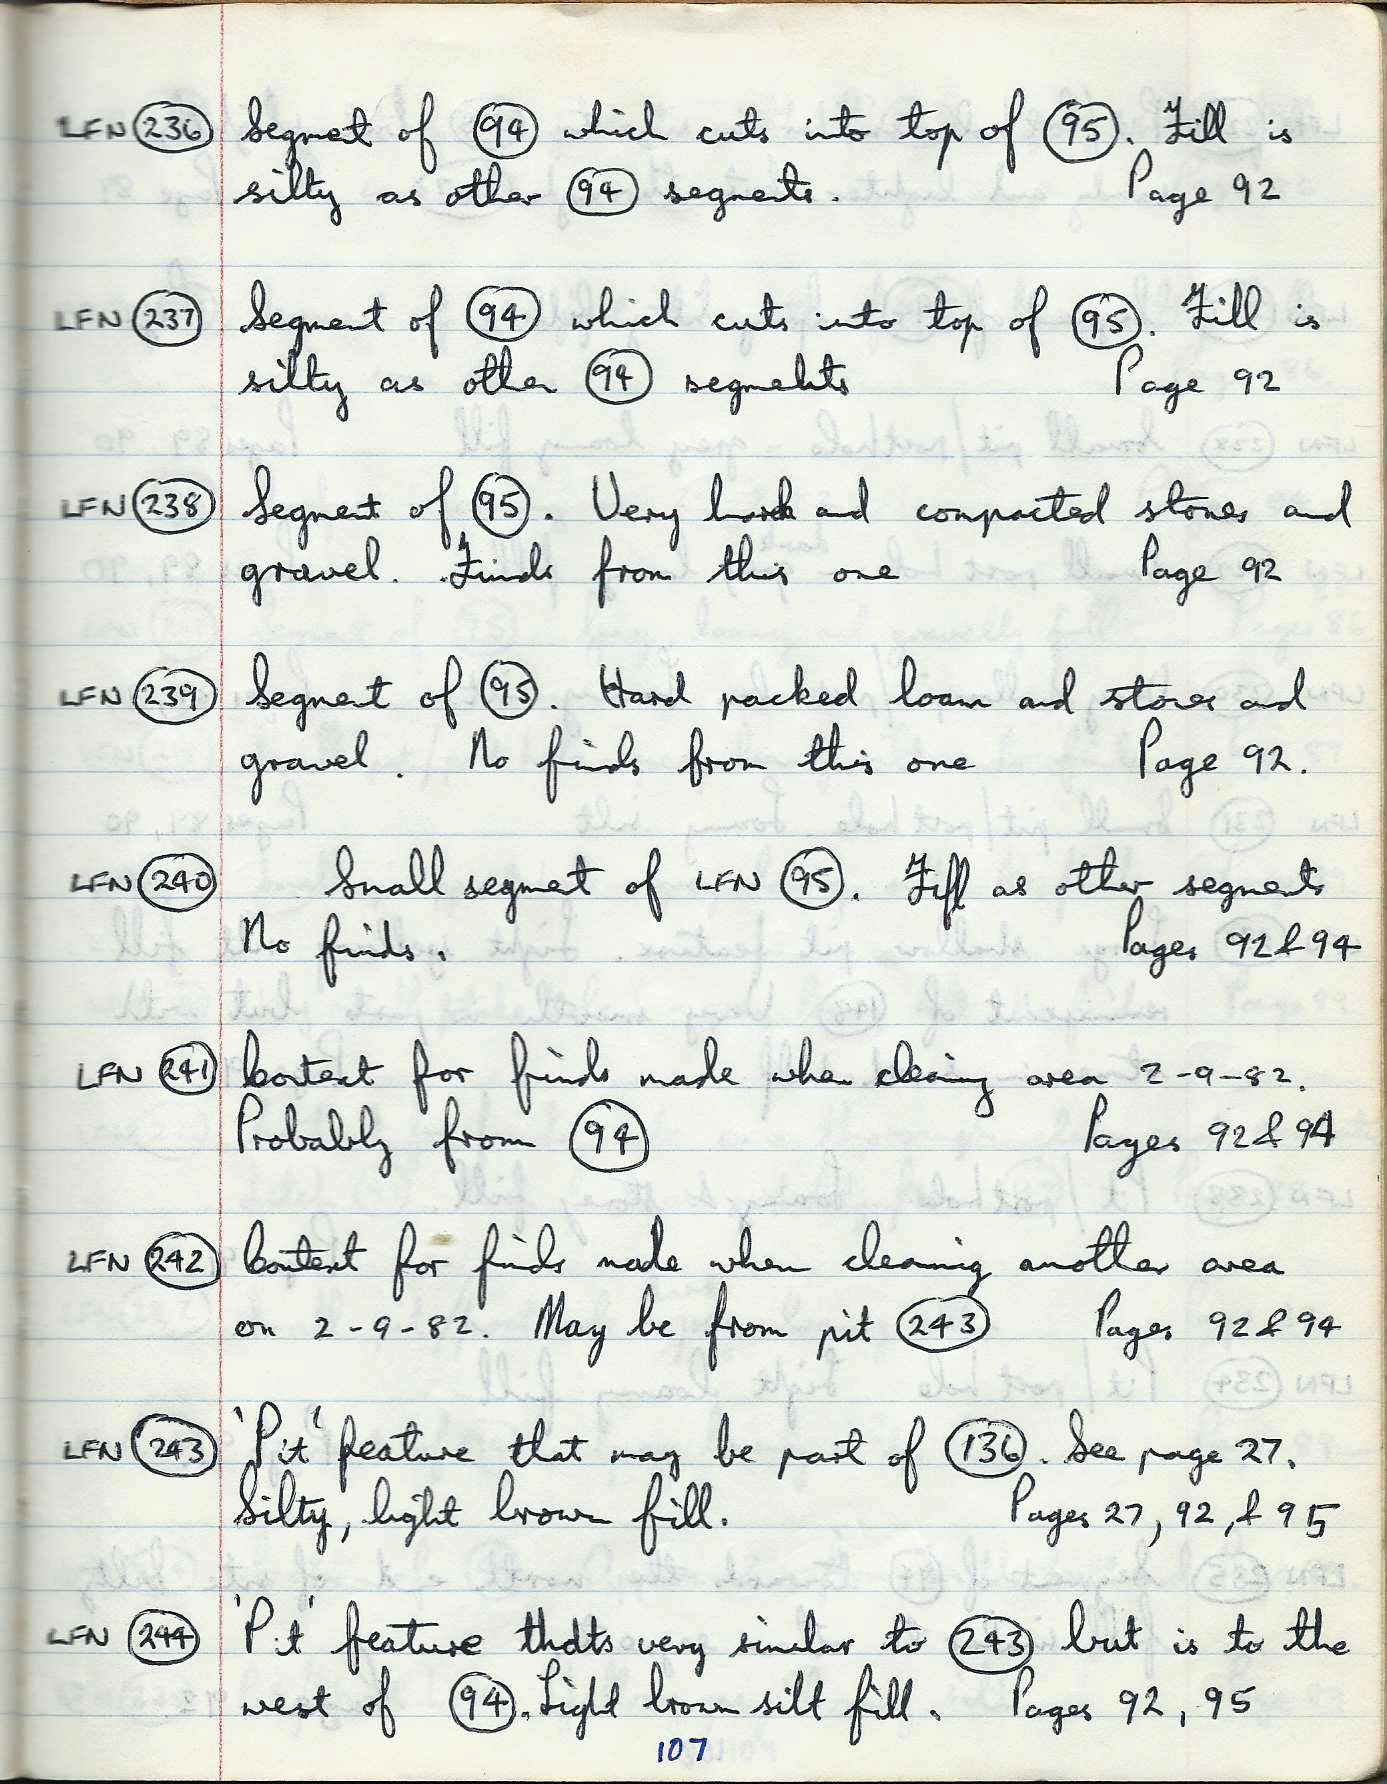 LFN 236 Segment of 94 which cuts into top of 95. Fill is
silty as other 94 segments. Page 92
LFN 237 Segment of 94 which cuts into top of 95. Fill is
silty as other 94 segments Page 92
LFN 238 Segment of 95. Very hard and compacted stones and
gravel. Finds from this one Page 92
LFN 239 Segment of 95. Hard packed loam and stones and
gravel. No finds from this one Page 92.
LFN 240 Small segment of LFN 95. Fill as other segments
No finds. Pages 92 & 94
LFN 241 Context for finds made when cleaning area 2-9-82.
Probably from 94 Pages 92 & 94
LFN 242 Context for finds made when cleaning another area
on 2-9-82. May be from pit 243 Pages 92 & 94
LFN 243 'Pit' feature that may be part of 136. See page 27.
Silty, light brown fill. Pages 27, 92, & 95
LFN 244 'Pit' feature thats very similar to 243 but is to the
west of 94. Light brown silt fill. Pages 92, 95
107